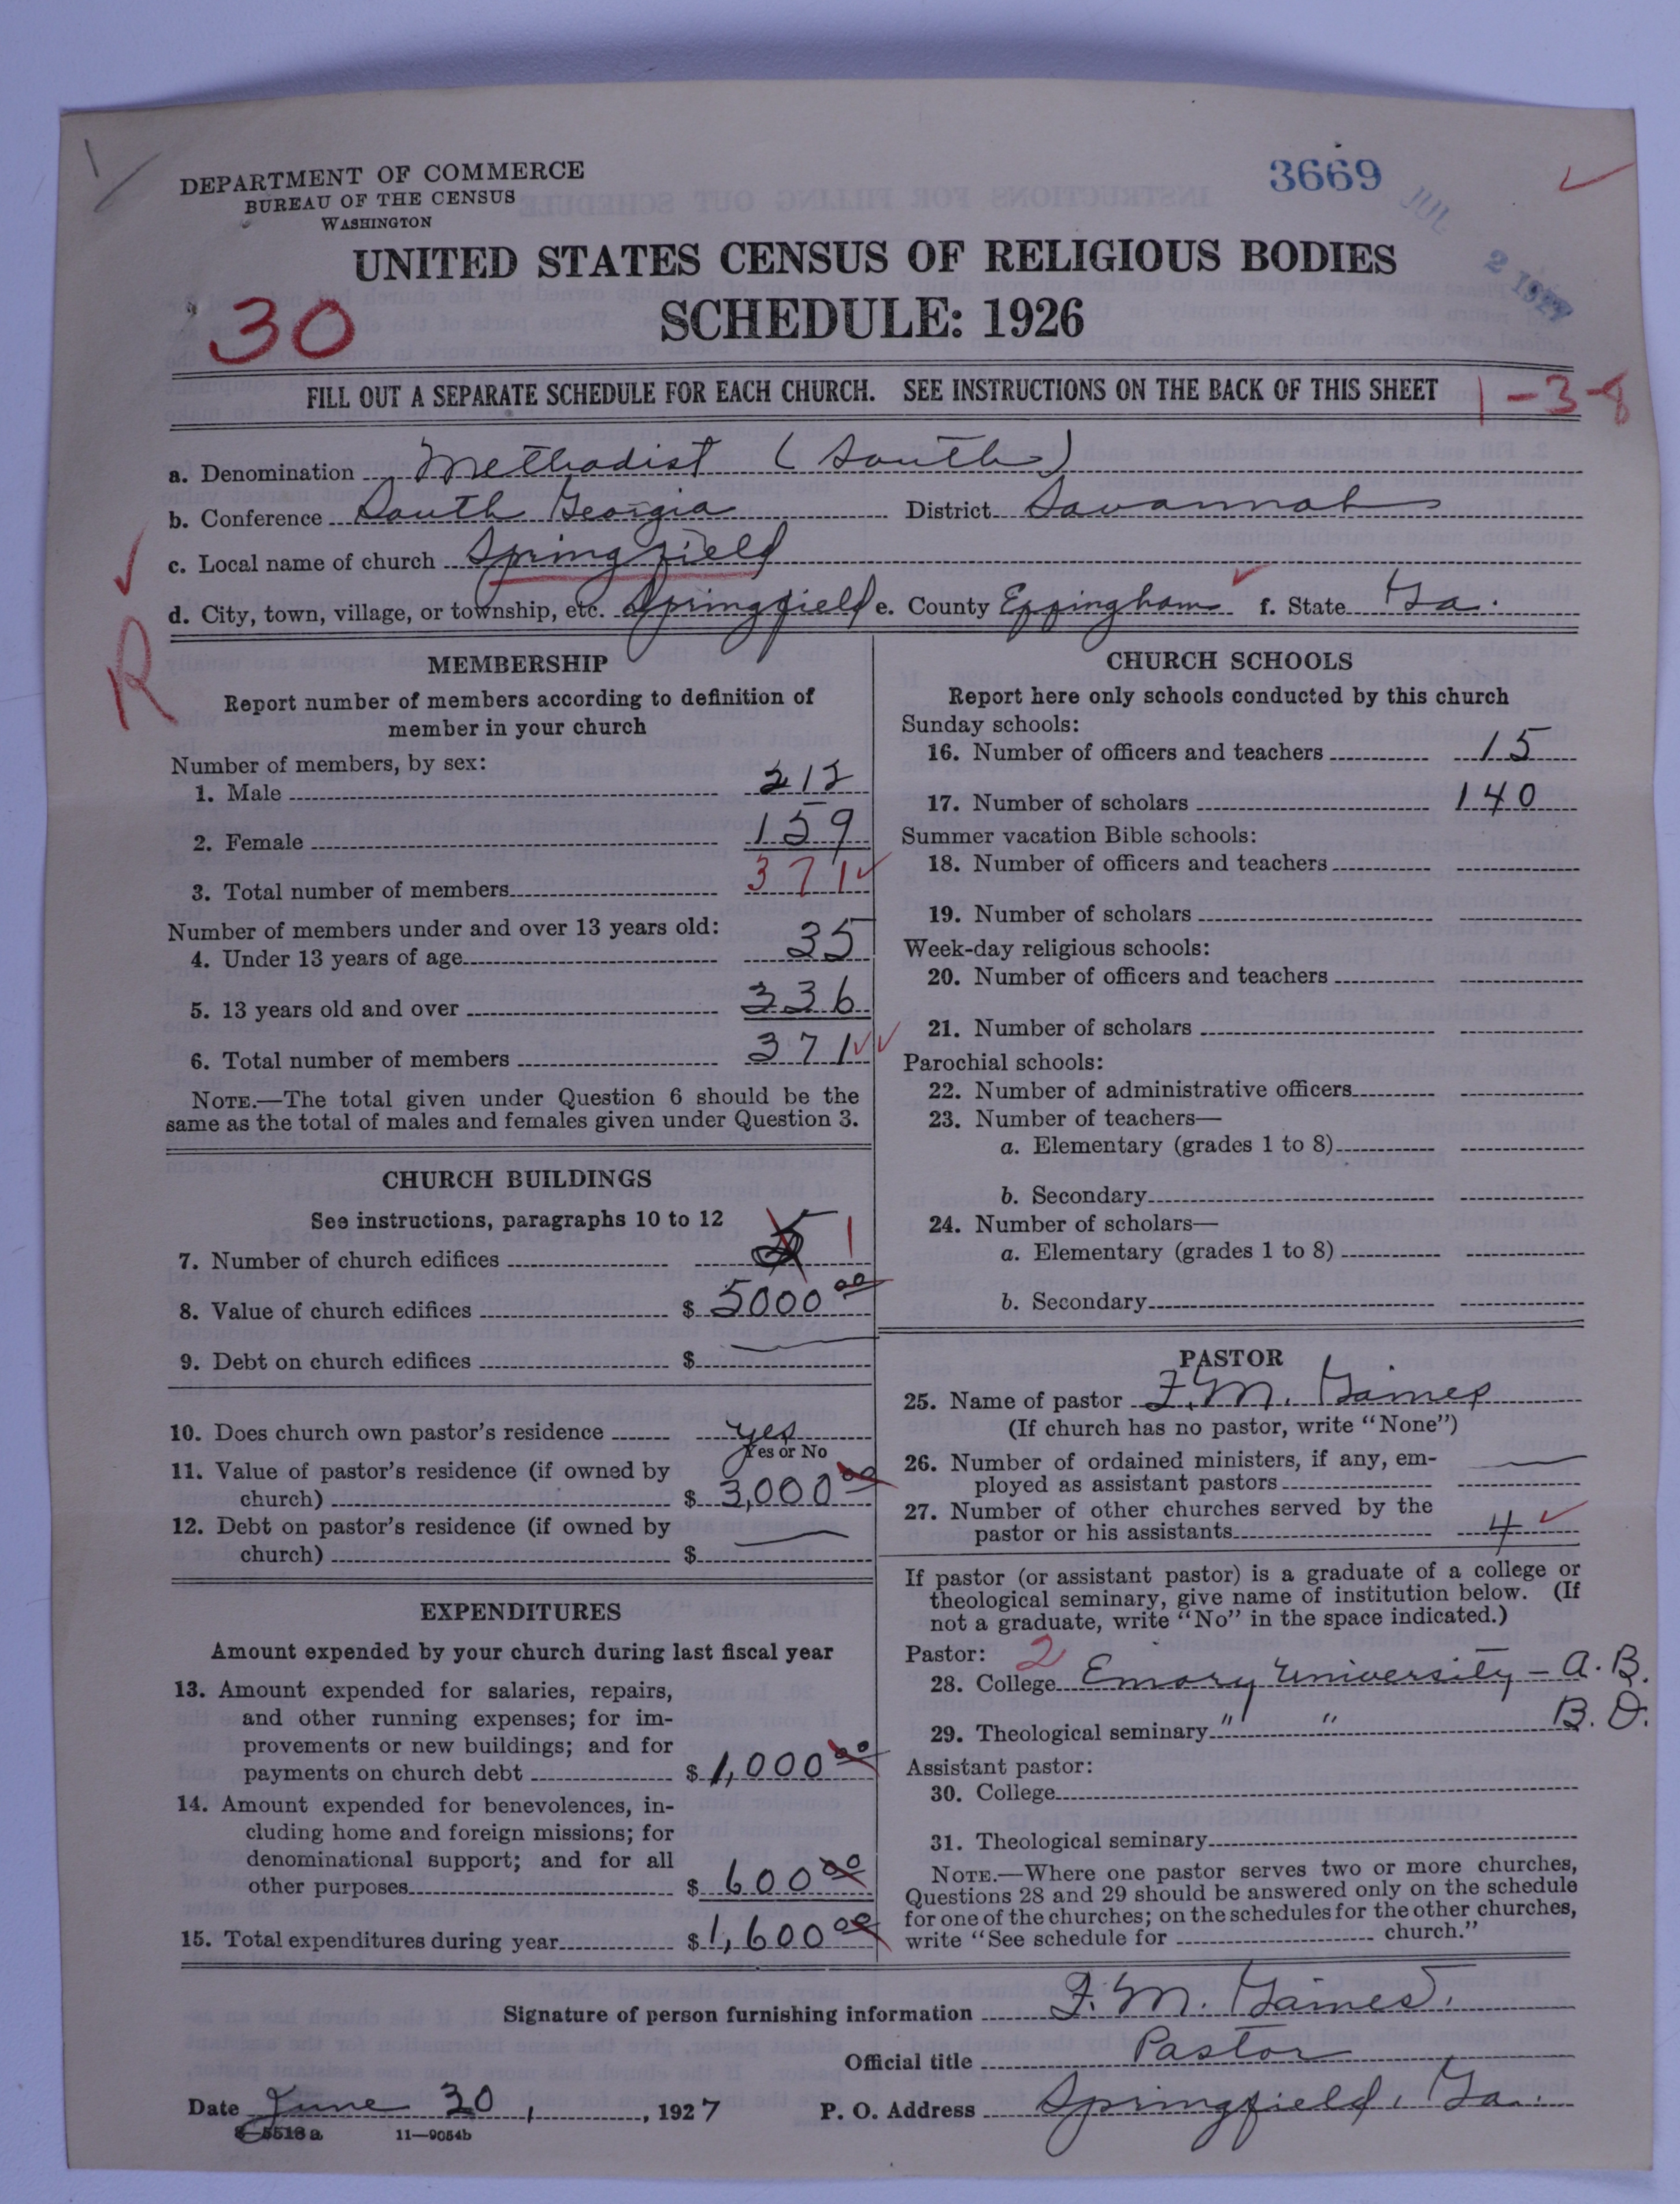 DEPARTMENT OF COMMERCE
BUREAU OF THE CENSUS
WASHINGTON
3669
JUL 2 1927
UNITED STATES CENSUS OF RELIGIOUS BODIES
SCHEDULE: 1926
30
FILL OUT A SEPARATE SCHEDULE FOR EACH CHURCH. SEE INSTRUCTIONS ON THE BACK OF THIS SHEET
1-3-8
a. Denomination Methodist (South)
b. Conference South Georgia District Savannah
c. Local name of church Springfield
d. City, town, village, or township, etc. Springfield e. County Effingham f. State Ga.
R
MEMBERSHIP
Report number of members according to definition of
member in your church
Number of members, by sex:
1. Male 212
2. Female 159
3. Total number of members 371
Number of members under and over 13 years old:
4. Under 13 years of age 35
5. 13 years old and over 336
6. Total number of members 371
NOTE.—The total given under Question 6 should be the
same as the total of males and females given under Question 3.
CHURCH BUILDINGS
See instructions, paragraphs 10 to 12
7. Number of church edifices 1
8. Value of church edifices $ 5000 00
9. Debt on church edifices $
10. Does church own pastor's residence yes
Yes or No
11. Value of pastor's residence (if owned by
church) $ 3,000 00
12. Debt on pastor's residence (if owned by
church) $
EXPENDITURES
Amount expended by your church during last fiscal year
13. Amount expended for salaries, repairs,
and other running expenses; for im-
provements or new buildings; and for
payments on church debt $ 1,000 00
14. Amount expended for benevolences, in-
cluding home and foreign missions; for
denominational support; and for all
other purposes $ 600 00
15. Total expenditures during year $ 1,600 00
CHURCH SCHOOLS
Report here only schools conducted by this church
Sunday schools:
16. Number of officers and teachers 15
17. Number of scholars 140
Summer vacation Bible schools:
18. Number of officers and teachers
19. Number of scholars
Week-day religious schools:
20. Number of officers and teachers
21. Number of scholars
Parochial schools:
22. Number of administrative officers
23. Number of teachers—
a. Elementary (grades 1 to 8)
b. Secondary
24. Number of scholars—
a. Elementary (grades 1 to 8)
b. Secondary
PASTOR
25. Name of pastor F. M. Gaines
(If church has no pastor, write "None")
26. Number of ordained ministers, if any, em-
ployed as assistant pastors
27. Number of other churches served by the
pastor or his assistants 4
If pastor (or assistant pastor) is a graduate of a college or
theological seminary, give name of institution below. (If
not a graduate, write "No" in the space indicated.)
Pastor: 2
28. College Emory University - A.B.
29. Theological seminary " " B.D.
Assistant pastor:
30. College
31. Theological seminary
NOTE.—Where one pastor serves two or more churches,
Questions 28 and 29 should be answered only on the schedule
for one of the churches; on the schedules for the other churches,
write "See schedule for church."
Signature of person furnishing information F. M. Gaines.
Official title Pastor
Date June 30, 1927 P. O. Address Springfield, Ga.
8-5518a 11—9054b